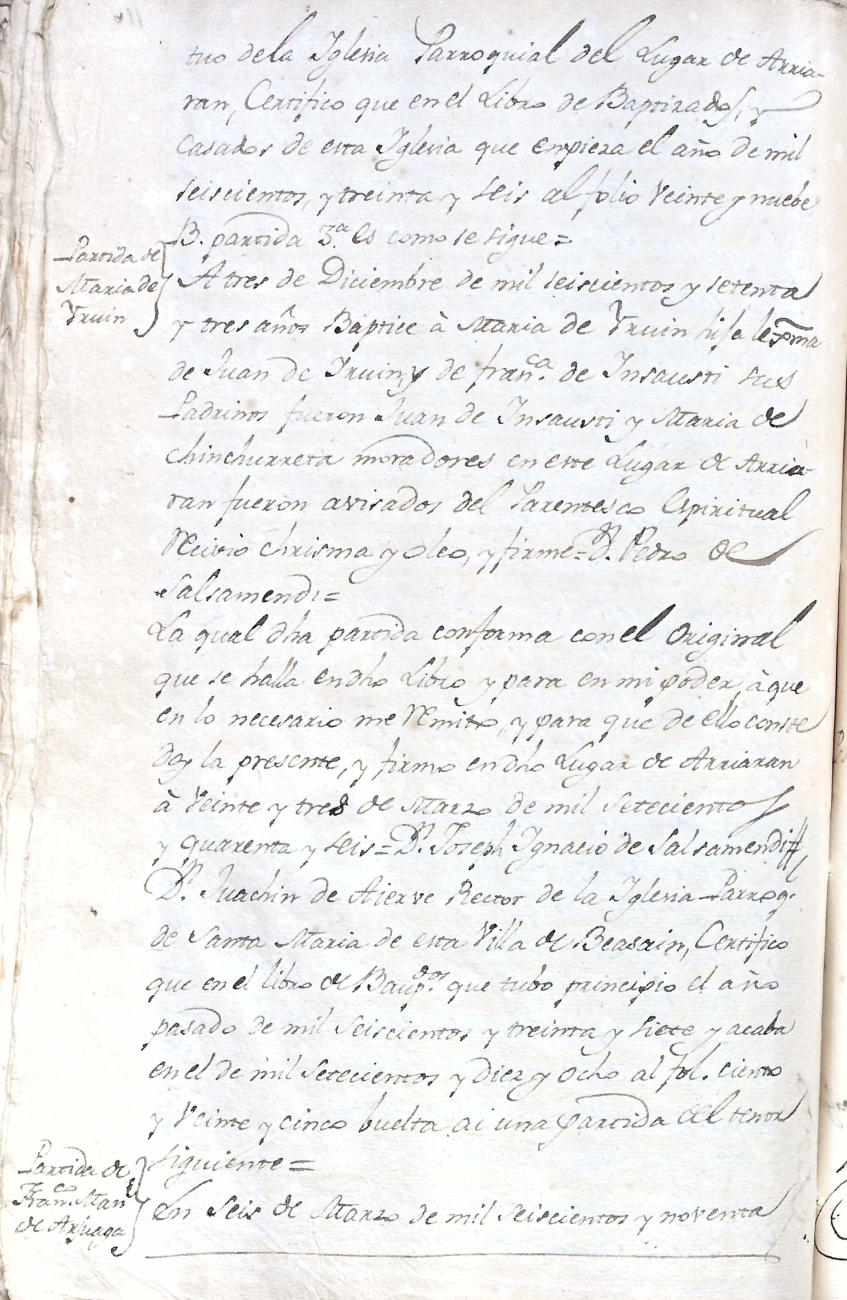 tuo de la Iglesia Parroquial del Lugar de Arria-
ran, Certifico que en el Libro de Baptizados, y
Casados de esta Iglesia que empieza el año de mil
seiscientos, y treinta y seis al folio Veinte y nuebe
B. partida 3.a es como se sigue=
Partida de
Maria de
Yruin
A tres de Diciembre de mil seiscientos y setenta
y tres años Baptice à Maria de Yruin hija lexma
de Juan de Iruin, y de fran.ca de Insausti sus
Padrinos fueron Juan de Insausti y Maria de
Chinchurreta moradores en este Lugar de Arria-
ran fueron avisados del Parentesco Espiritual
Recivio chrisma y oleo, y firme= D.n Pedro de
Salsamendi=
La qual dha partida conforma con el Original
que se halla en dho Libro y para en mi poder, à que
en lo necesario me Remito, y para que de ello conste
doy la presente, y firmo en dho Lugar de Arriaran
à Veinte y tres de Marzo de mil Setecientos
y quarenta y seis= D.n Joseph Ignacio de Salsamendi
D.n Juachin de Aierve Rector de la Iglesia Parroq.
de Santa Maria de esta Villa de Beasain, Certifico
que en el libro de Baup.dos que tubo principio el año
pasado de mil Seiscientos y treinta y siete y acaba
en el de mil Setecientos y Diez y Ocho al fol. ciento
y Veinte y cinco buelta ai una partida del tenor
siguiente=
Partida de
Fran.co Man.l
de Arsuaga
En Seis de Marzo de mil Seiscientos y noventa